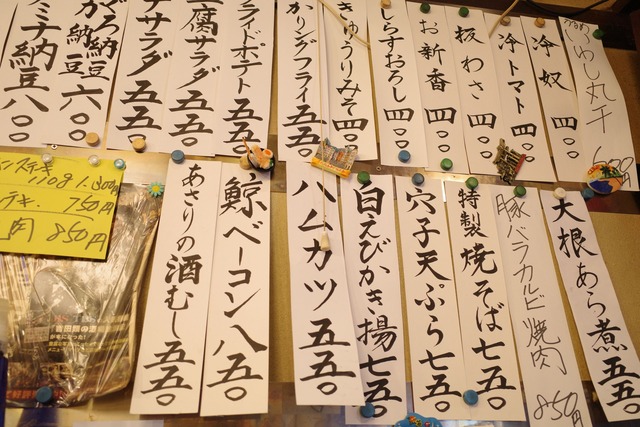 うるめいわし丸干
冷奴 四〇〇
冷トマト 四〇〇
板わさ 四〇〇
お新香 四〇〇
しらすおろし 四〇〇
きゅうりみそ 四〇〇
かリングフライ 五五〇
ライドポテト 五五〇
腐サラダ 五五〇
ナサラダ 五五〇
納豆 六〇〇
ミナ納豆 八〇〇
大根あら煮 五五〇
豚バラカルビ焼肉 850円
特製焼そば 七五〇
穴子天ぷら 七五〇
白えびかき揚 七五〇
ハムカツ 五五〇
鯨ベーコン 八五〇
あさりの酒むし 五五〇
テキ. 750円
肉 850円